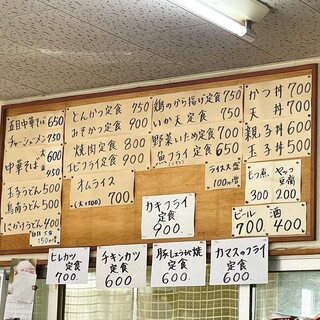 五目中華そば 650
チャーシューメン 750
中華そば 大 600
450
玉子うどん 500
鳥南うどん 500
にかけうどん 400
麺類 大盛 150円増
とんかつ定食 750
みそかつ定食 900
焼肉定食 800
エビフライ定食 900
オムライス 700
鶏のから揚げ定食 750
いか天定食 750
野菜いため定食 700
魚フライ定食 650
ライス大盛 100円増
かつ丼 700
天丼 700
親子丼 600
玉子丼 500
もつ煮 300
やっこ豆腐 200
ビール 700
酒 400
カキフライ
定食
900.
ヒレカツ
定食
700.
チキンカツ
定食
600
豚しょうが焼
定食
600
カマスのフライ
定食
600